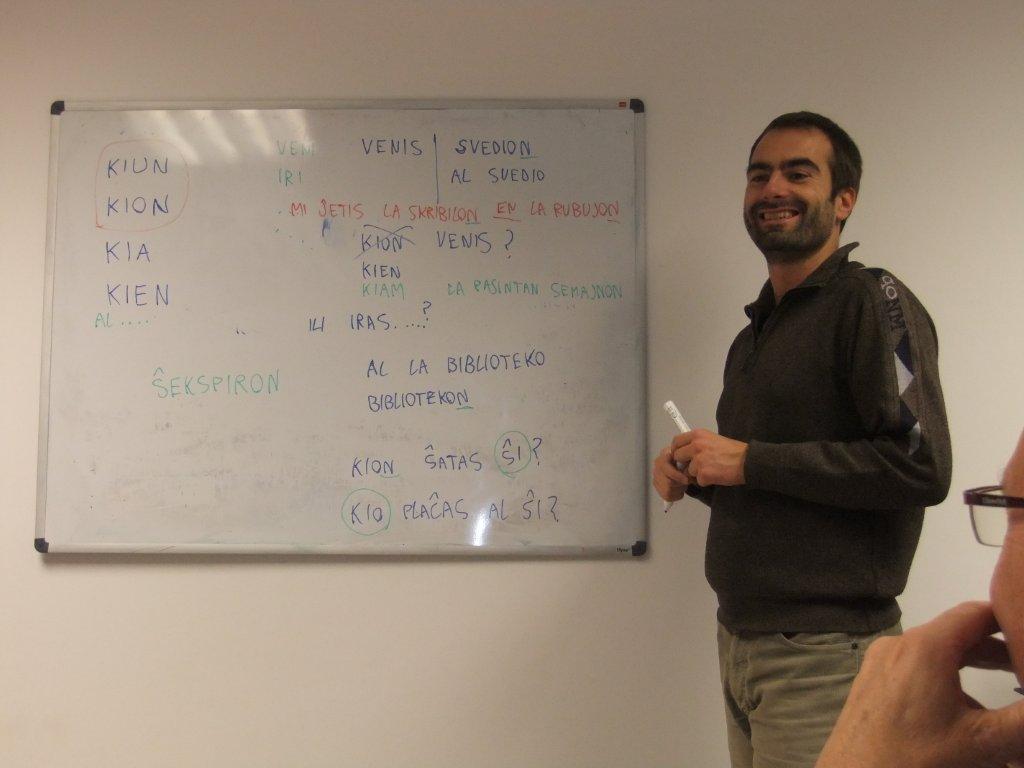 KIUN
KION
KIA
KIEN
AL .....
ŜEKSPIRON
VENI
IRI
VENIS
SVEDION
AL SVEDIO
MI JETIS LA SKRIBILON EN LA RUBUJON
KION VENIS ?
KIEN
KIAM
LA PASINTAN SEMAJNON
ILI IRAS.....?
AL LA BIBLIOTEKO
BIBLIOTEKON
KION ŜATAS ŜI?
KIO PLAĈAS AL ŜI?